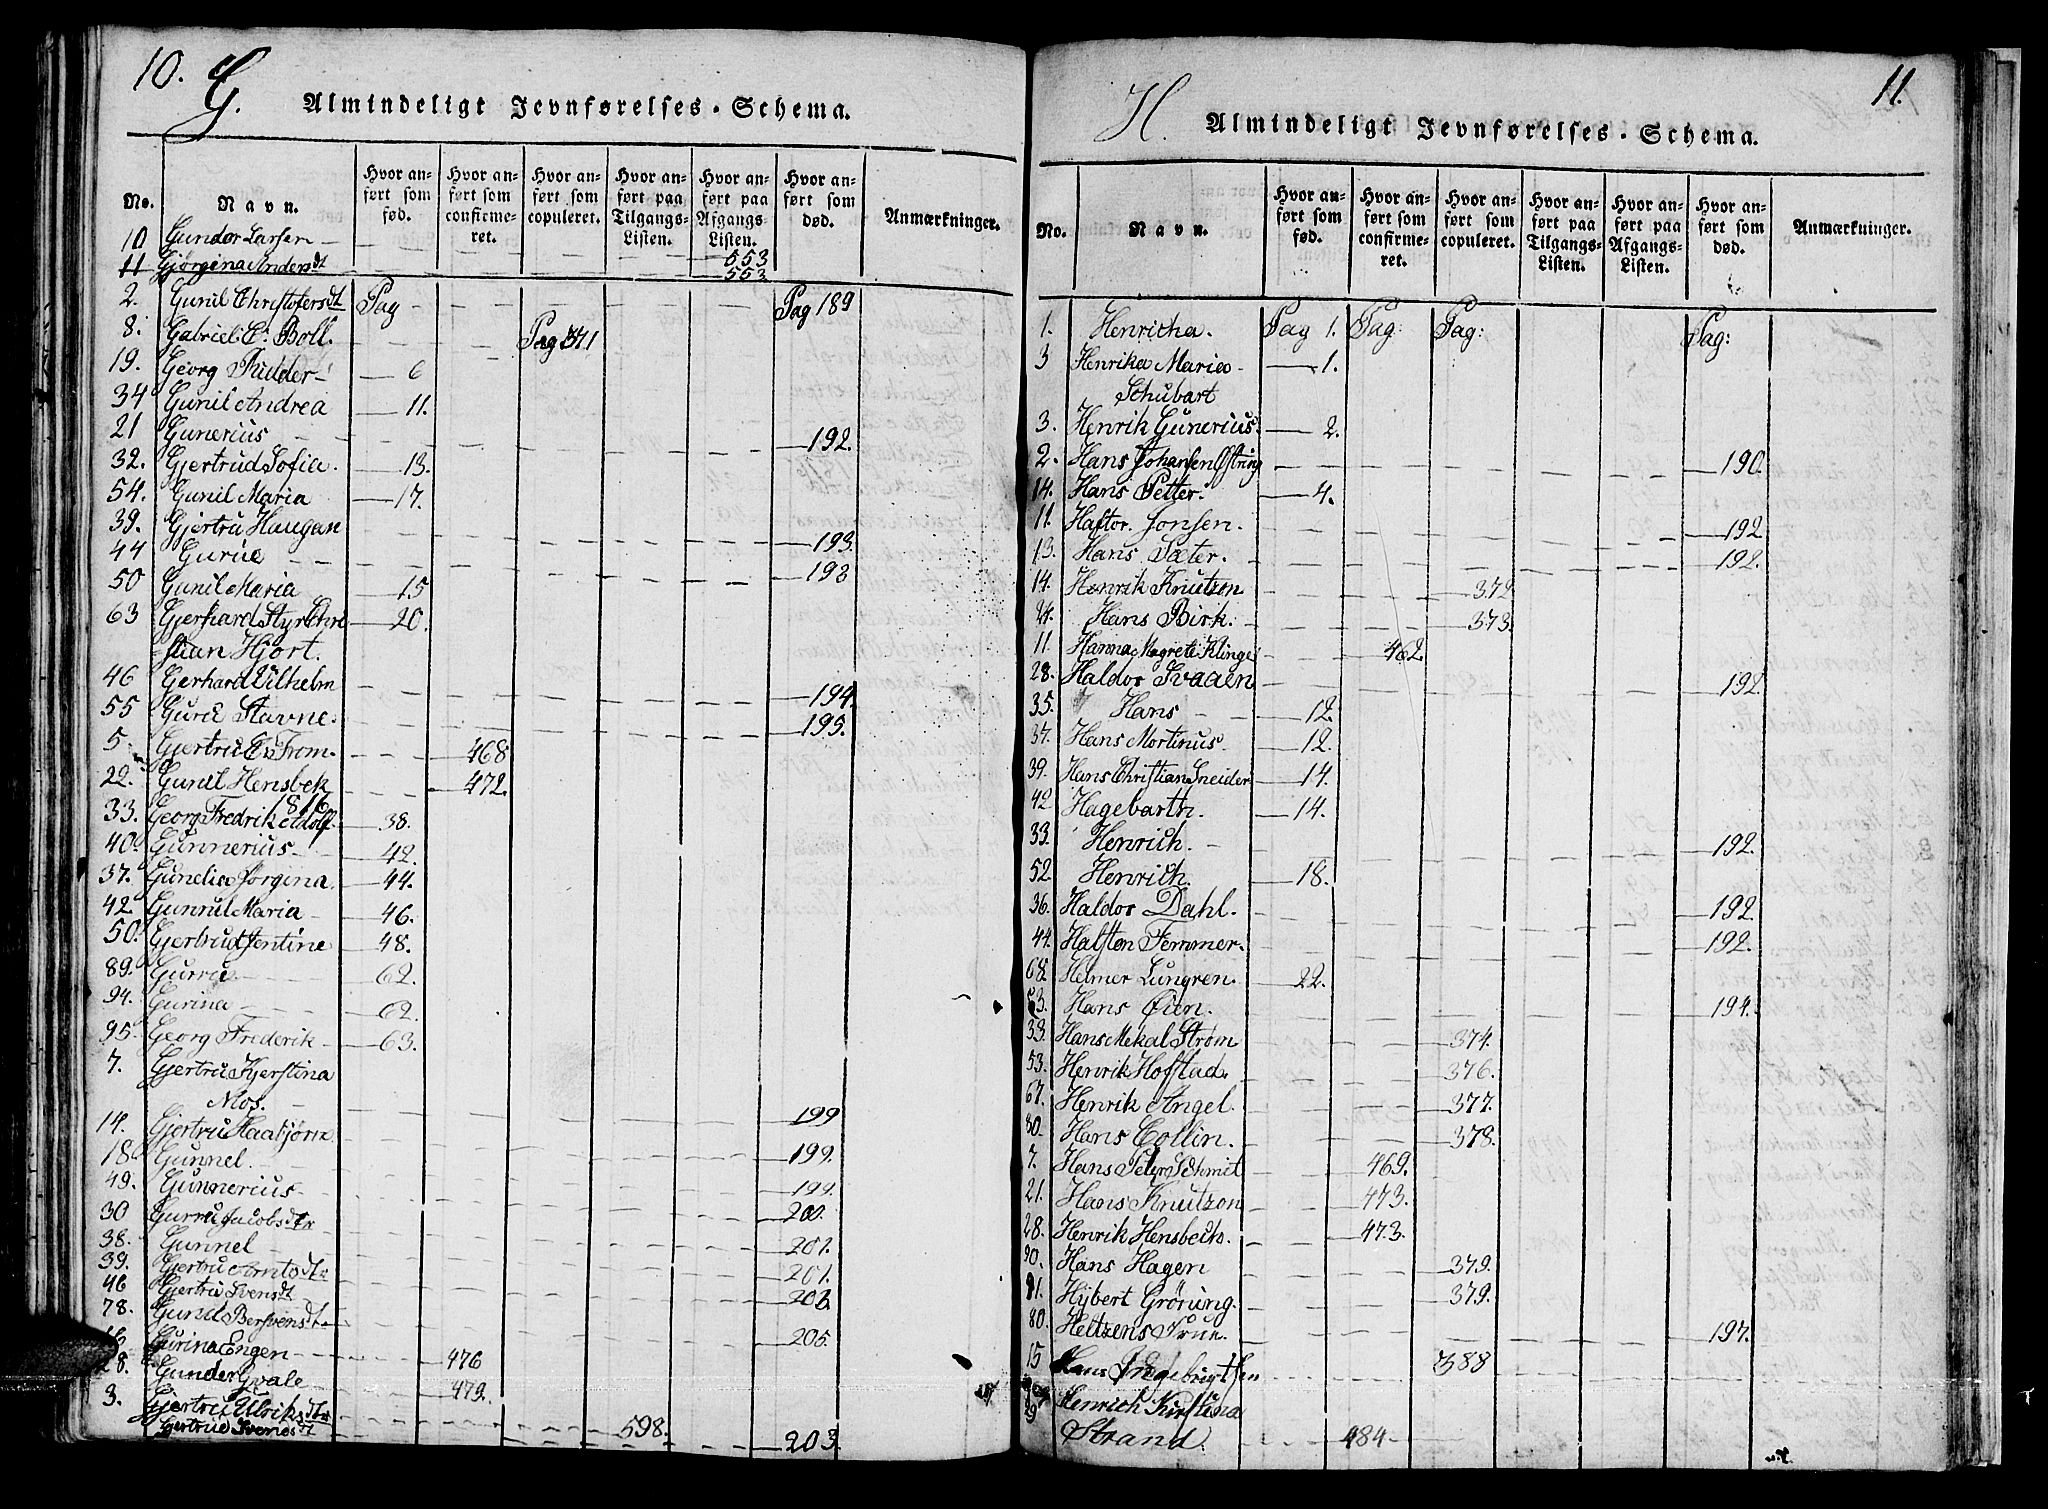 10.
G.
Almindeligt Jevnførelses-Schema.
No.
Navn.
Hvor anført som fød.
Hvor anført som confirmeret.
Hvor anført som copuleret.
Hvor anført paa Tilgangs-Listen.
Hvor anført paa Afgangs-Listen.
Hvor anført som død.
Anmærkninger.
10 Gunder Larsen 553
11 Gjørgina Andersdt 553
2. Gunil Christofersdt Pag Pag 189
8. Gabriel C. Boll. Pag 371
19. Georg Ridder 6
34 Gunil Andrea 11.
21 Gunerius 192.
32. Gjertrud Sofia. 13.
54. Gunil Maria 17.
39. Gjertru Haugan 193.
44 Gurue 193
50 Gunil Maria 15
63 Gjerhard Styr Chri 20.
stian Hjort.
46 Gerhard Vilhelm 194.
55 Guru Stavne. 195.
5 Gjertru From. 468
22. Gunil Hensbek 472.
1816
33. Georg Fredrik Adolf 38.
40. Gunnerius 42.
37. Gunelia Jorgina. 44.
42 Gunrul Maria 46.
50. Gjertrud Jentine 48.
89. Gurru 62.
94. Gurina 62.
95. Georg Frederik 63.
7. Gjertru Kjerstina
Mos. 199
14. Gjertru Haabjørn 199.
18 Gunnel. 199.
49. Gunnerius 200.
30 Gurru Jacobsdtr 201.
38. Gunnel 201.
39. Gjertru Arntsdtr 203.
46 Gjertru Svensdt
78. Gunil Bersvensdt 205.
Gurina Engen 476
28. Gunder Gvale 479.
3. Gjertru Ulriksdtr 598.
Gjertrud Svensdt 203.
11.
H.
Almindeligt Jevnførelses-Schema.
No.
Navn.
Hvor anført som fød.
Hvor anført som confirmeret.
Hvor anført som copuleret.
Hvor anført paa Tilgangs-Listen.
Hvor anført paa Afgangs-Listen.
Hvor anført som død.
Anmærkninger.
1. Henricha. Pag 1. Pag: Pag: Pag:
3 Henrika Maria 1.
Schubart
3. Henrik Gunerius 2.
2. Hans Johansen Østring 190.
14. Hans Petter. 4.
11. Haftor Jonsen. 192
13. Hans Sæter. 192.
14. Henrik Knutzon 372
24. Hans Birk. 373.
11. Hanna Magrete Klinge 462.
28. Haldor Svaaen 192.
35. Hans 12.
37. Hans Mortinus 12.
39. Hans Christian Sneider 14.
42 Hagebarth. 14.
33. Henrich. 192.
52. Henrich. 18.
36. Haldor Dahl. 192.
44. Halsten Femmer. 192.
68. Helmer Lungren. 22.
53. Hans Øien. 194.
33. Hans Mekal Strøm 374.
53. Henrik Hofstad. 376.
67. Henrik Angel. 377.
30 Hans Collin. 378.
7. Hans Peter Schmit 469.
21. Hans Knutzon 473.
28. Henrik Hensbeck. 473.
90. Hans Hagen 379.
91. Hybert Grörung. 379.
80. Heltzens Frue. 197.
15 Hans Ingebrigtsen 388
Henrich Kirstina
29 Strand. 484